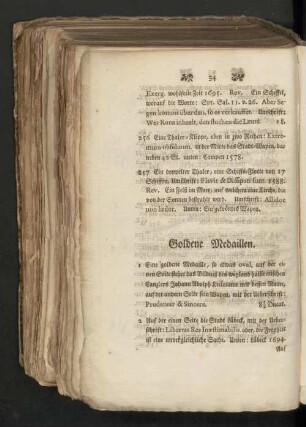 54
Exerg. wohlfeile Zeit 1695. Rev. Ein Scheffel,
worauf die Worte: Spr. Sal. 11. v. 26. Aber Se-
gen kommt über den, so es verkauffet. Umschrift:
Wer Korn inhält, dem fluchen die Leute. 1 ß.
256 Eine Thaler-Klippe, oben in zwo Reihen:
in der Mitte das Stadt-Wapen, da-
neben 42 St. unten: Campen 1578.
257 Ein doppelter Thaler, eine Schiffs-Flotte von 17
Schiffen. Umschrift: Flavit & Dissipati sunt. 1588.
Rev. Ein Felß im Meer, auf welchem eine Kirche, die
von der Sonnen bestrahlt wird. Umschrift: Allidor
non laedor. Unten: Ein gekröntes Wapen.
Goldene Medaillen.
1 Eine goldene Medaille, so etwas oval, auf der ei-
nen Seite stehet das Bildniß des weyland
Canzlers Johann Adolph
auf der andern Seite sein Wapen, mit der Ueberschrift:
Prudenter & Sincere. Ducat.
2 Auf der einen Seite die Stadt Lübeck, mit der Ueber-
schrift: Libertas Res Inaestimabilis. oder, die Freyheit
ist eine unvergleichliche Sache. Unten: Lübeck 1694
Auf